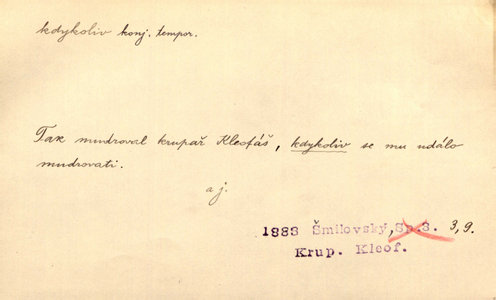 kdykoliv konj. tempor.
Tak mudroval krupař Kleofáš, kdykoliv se mu událo
mudrovati.
a j.
1883 Šmilovský, Sp. 3. 3, 9.
Krup. Kleof.